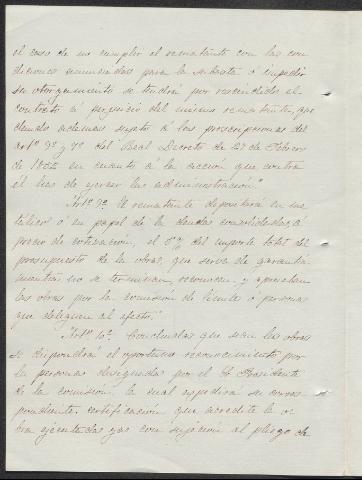 el caso de no cumplir el rematante con las con
diciones enunciadas para la subasta ó impedir
su otorgamiento se tendrá por rescindido el
contrato á perjuicio del mismo rematante, que
dando ademas sujeto á las prescripciones del
artº 5º y 9º del Real Decreto de 27 de Febrero
de 1852 en cuanto á la accion que contra
él has de ejercer la administracion."
Artº 9º El rematante depositará en me
tálico ó en papel de la deuda consolidada, á
precio de cotizacion, el 5% del importe total del
presupuesto de la obra, que sirva de garantia
mientras no se terminen, reconozcan y aprueben
las obras por la comision de límite ó persona
que deleguen al efecto."
Artº 10º Concluidas que sean las obras
se dispondrá el oportuno reconocimiento por
la persona designada por el Sr Presidente
de la comisión, la cual expedirá su corres
pondiente certificación que acredite la o
bra ejecutada y que con sujecion al pliego de